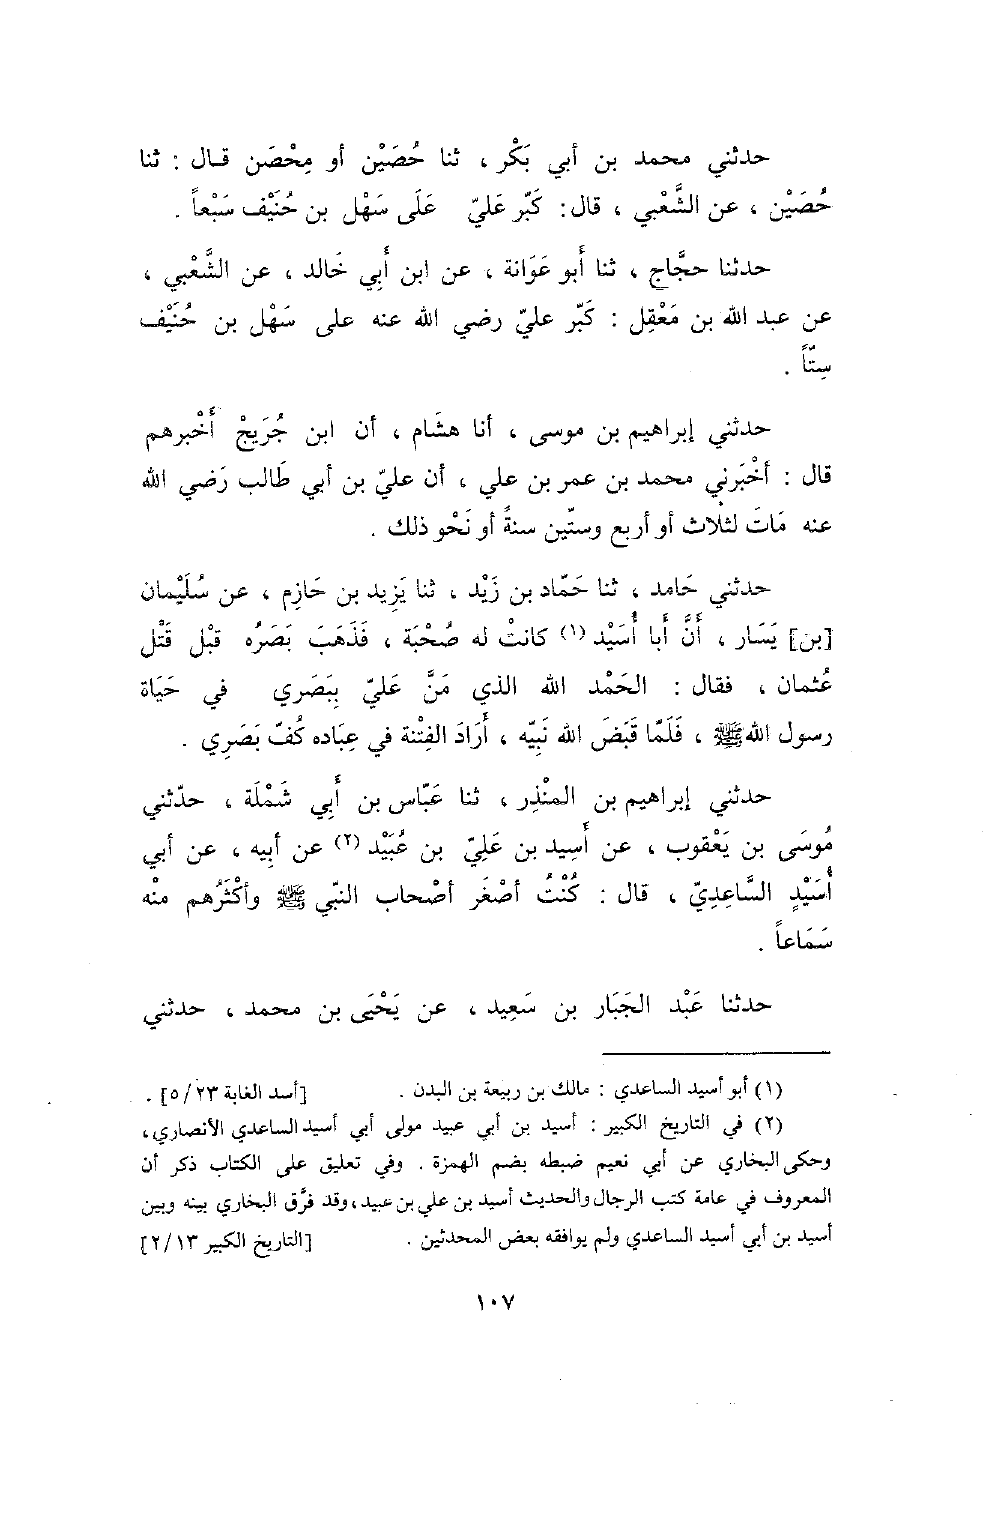 حدثني محمد بن أبي بَكْر ، ثنا حُصَيْن أو مِحْصَن قال : ثنا
حُصَيْن ، عن الشَّعْبي ، قال: كَبّر عَليّ عَلَى سَهْل بن حُنَيْف سَبْعاً .
حدثنا حجَّاج ، ثنا أَبو عَوَانة ، عن ابن أَبِي خَالد ، عن الشَّعْبي ،
عن عبد الله بن مَعْقِل : كَبّر عليّ رضي الله عنه على سَهْل بن حُنَيْف
سِتّاً .
حدثني إبراهيم بن موسى ، أنا هشَام ، أن ابن جُرَيجْ أَخْبرهم
قال : أخْبَرني محمد بن عمر بن علي ، أن عليّ بن أبي طَالب رَضي الله
عنه مَاتَ لثلاث أو أربع وستّين سنةً أو نَحْو ذلك .
حدثني حَامد ، ثنا حَمّاد بن زَيْد ، ثنا يَزِيد بن حَازِم ، عن سُلَيْمان
[بن] يَسَار ، أَنَّ أَبا أُسَيْد (١) كانتْ له صُحْبَة ، فَذَهَبَ بَصَرُه قبْل قَتْل
عُثمان ، فقال : الحَمْد الله الذي مَنَّ عَليّ بِبَصَري في حَيَاة
رسول الله ﷺ ، فَلَمّا قَبَضَ الله نَبِيّه ، أَرَادَ الفِتْنة في عِبَاده كُفّ بَصَرِي .
حدثني إبراهيم بن المنْذِر ، ثنا عَبّاس بن أَبِي شَمْلَة ، حدّثني
مُوسَى بن يَعْقوب ، عن أَسِيد بن عَلِيّ بن عُبَيْد (٢) عن أبِيه ، عن أبي
أُسَيْدٍ السَّاعِدِيّ ، قال : كُنْتُ أصْغَر أصْحاب النبّي ﷺ وأكْثَرُهم منْه
سَمَاعاً .
حدثنا عَبْد الجَبَار بن سَعِيد ، عن يَحْيَى بن محمد ، حدثني
(١) أبو أسيد الساعدي : مالك بن ربيعة بن البدن . [أسد الغابة ٢٣/ ٥] .
(٢) في التاريخ الكبير : أسيد بن أبي عبيد مولى أبي أسيد الساعدي الأنصاري،
وحكى البخاري عن أبي نعيم ضبطه بضم الهمزة . وفي تعليق على الكتاب ذكر أن
المعروف في عامة كتب الرجال والحديث أسيد بن علي بن عبيد، وقد فرّق البخاري بينه وبين
أسيد بن أبي أسيد الساعدي ولم يوافقه بعض المحدثين . [التاريخ الكبير ١٣/ ٢]
١٠٧